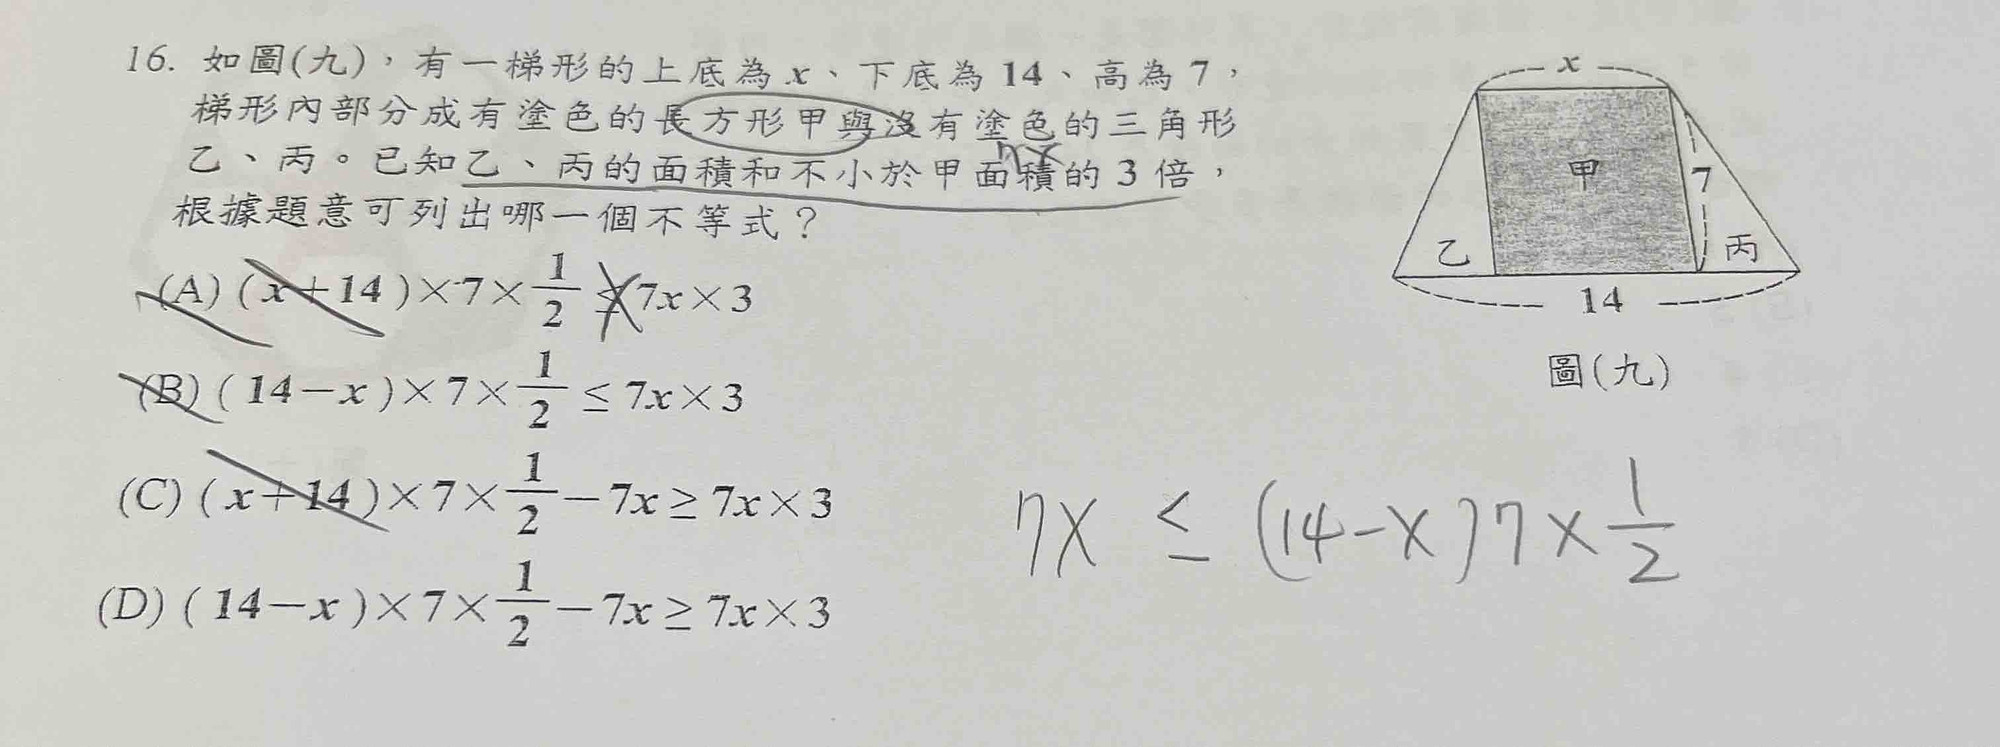 16. 如圖(九)，有一梯形的上底為 x、下底為 14、高為 7，
梯形內部分成有塗色的長方形甲與沒有塗色的三角形
乙、丙。已知乙、丙的面積和不小於甲面積的 3 倍，
7x
根據題意可列出哪一個不等式？
(A) (x＋14)×7×1/2 ≤ 7x×3
(B) (14－x)×7×1/2 ≤ 7x×3
(C) (x＋14)×7×1/2－7x ≥ 7x×3
(D) (14－x)×7×1/2－7x ≥ 7x×3
x
甲
7
乙
丙
14
圖(九)
7x ≤ (14-x)7×1/2